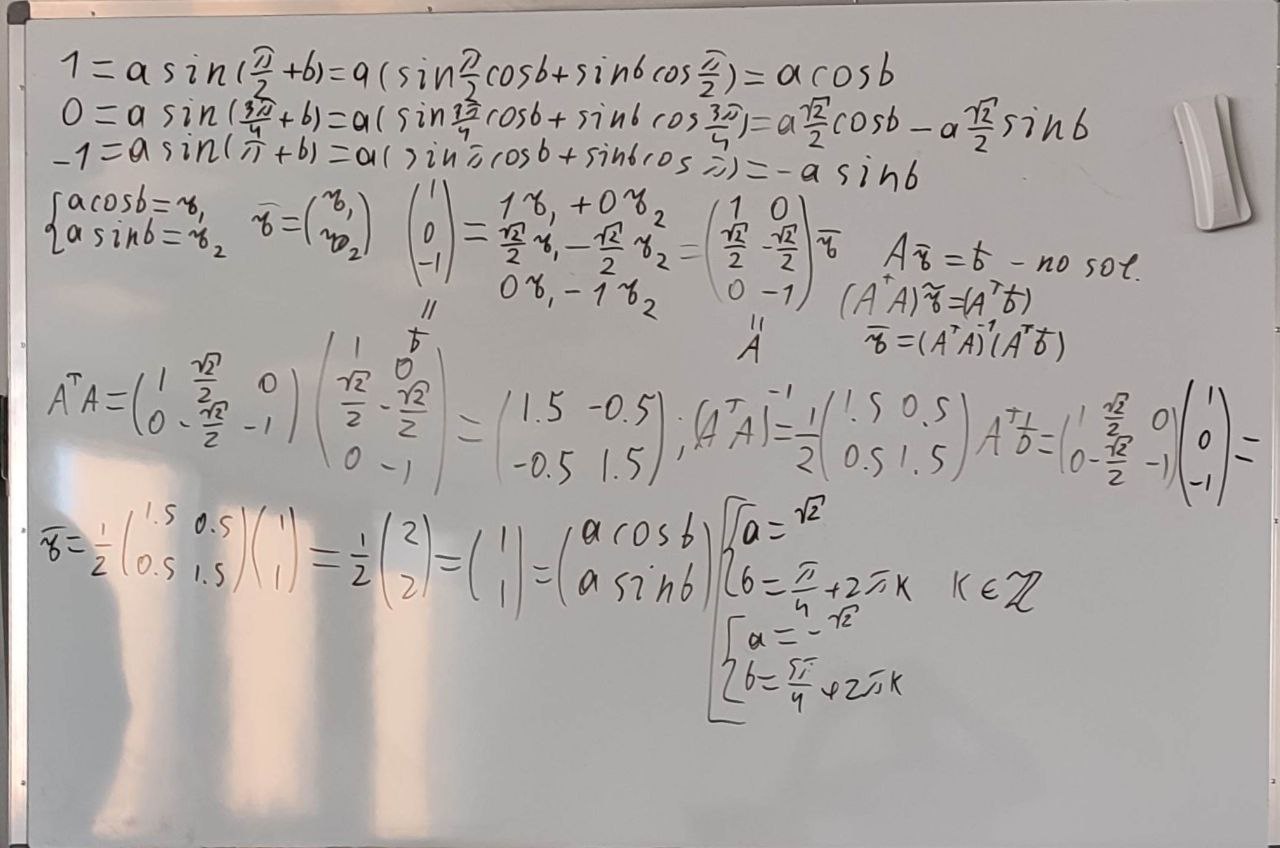 1 = a sin(π/2 + b) = a(sin π/2 cosb + sinb cos π/2) = a cosb
0 = a sin(3π/4 + b) = a(sin 3π/4 cosb + sinb cos 3π/4) = a √2/2 cosb - a √2/2 sinb
-1 = a sin(π + b) = a(sin π cosb + sinb cos π) = -a sinb
{ a cosb = x₁, a sinb = x₂ x̄ = (x₁; x₂) (1; 0; -1) = 1x₁ + 0x₂; √2/2 x₁ - √2/2 x₂; 0x₁ - 1x₂ = (1 0; √2/2 -√2/2; 0 -1) x̄ Ax̄ = b̄ - no sol.
(AᵀA)x̄ = (Aᵀb̄)
|| b̄ || A x̄ = (AᵀA)⁻¹(Aᵀb̄)
AᵀA = (1 √2/2 0; 0 -√2/2 -1) (1 0; √2/2 -√2/2; 0 -1) = (1.5 -0.5; -0.5 1.5); (AᵀA)⁻¹ = 1/2 (1.5 0.5; 0.5 1.5) Aᵀb̄ = (1 √2/2 0; 0 -√2/2 -1) (1; 0; -1) =
x̄ = 1/2 (1.5 0.5; 0.5 1.5) (1; 1) = 1/2 (2; 2) = (1; 1) = (a cosb; a sinb) [ { a = √2
b = π/4 + 2πk k ∈ ℤ
{ a = -√2
b = 5π/4 + 2πk